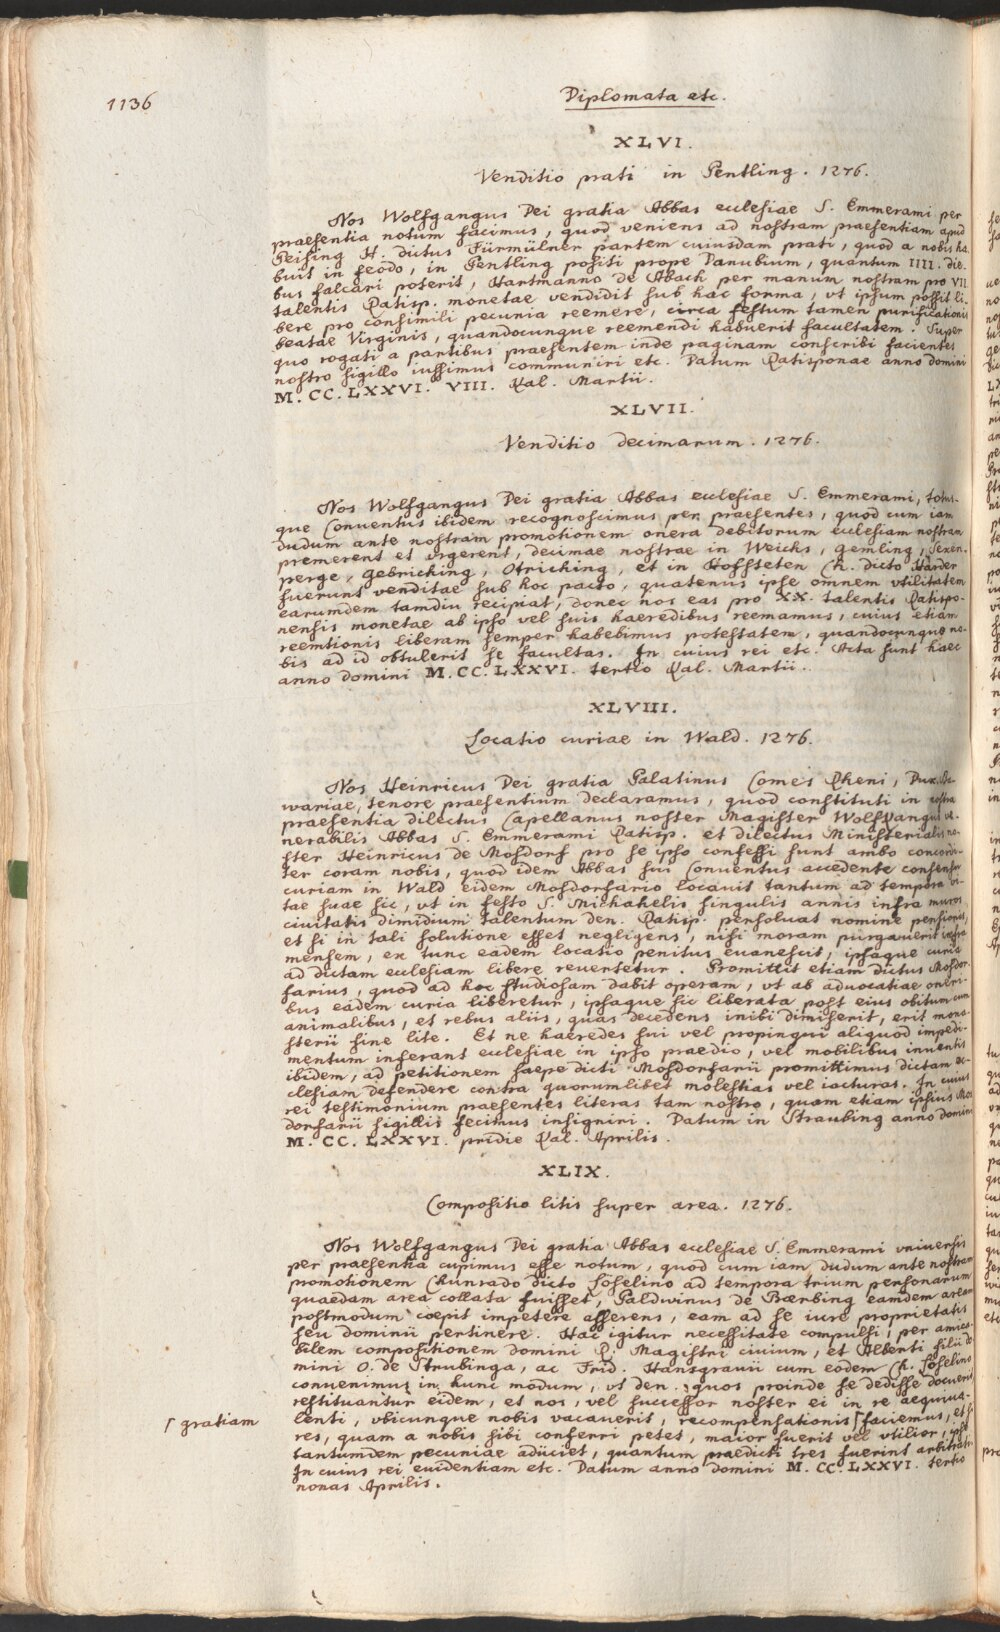 1136
Diplomata etc.
XLVI.
Venditio prati in Pentling. 1276.
Nos Wolfgangus Dei gratia Abbas ecclesiae S. Emmerami per
praesentia notum facimus, quod veniens ad nostram praesentiam apud
Peising H. dictus Fürmülner partem cuiusdam prati, quod a nobis ha-
buit in feodo, in Pentling positi prope Danubium, quantum IIII. die-
bus falcari poterit, Hartmanno de Abach per manum nostram pro VII
talentis Ratisp. monetae vendidit sub hac forma, vt ipsum possit li-
bere pro consimili pecunia reemere, circa festum tamen purificationis
beatae Virginis, quandocunque reemendi habuerit facultatem. Super
quo rogati a partibus praesentem inde paginam conscribi facientes
nostro sigillo iussimus communiri etc. Datum Ratisponae anno domini
M. CC. LXXVI. VIII. Kal. Martii.
XLVII.
Venditio decimarum. 1276.
Nos Wolfgangus Dei gratia Abbas ecclesiae S. Emmerami, totus-
que Conventus ibidem recognoscimus per praesentes, quod cum iam
dudum ante nostram promotionem onera debitorum ecclesiam nostram
premerent et vrgerent, decimae nostrae in Weichs, Gemling, Sexen-
perge, Gebriching, Otriching, et in Hofsteten Ch. dicto Harder
fuerunt venditae sub hoc pacto, quatenus ipse omnem vtilitatem
earumdem tamdiu recipiat, donec nos eas pro XX. talentis Ratispo-
nensis monetae ab ipso vel suis haeredibus reemamus, cuius etiam
reemtionis liberam semper habebimus potestatem, quandocunque no-
bis ad id obtulerit se facultas. In cuius rei etc. Acta sunt haec
anno domini M. CC. LXXVI. tertio Kal. Martii.
XLVIII.
Locatio curiae in Wald. 1276.
Nos Heinricus Dei gratia Palatinus Comes Rheni, Dux Ba-
wariae, tenore praesentium declaramus, quod constituti in nostra
praesentia dilectus Capellanus noster Magister Wolfgangus ve-
nerabilis Abbas S. Emmerami Ratisp. et dilectus Ministerialis no-
ster Heinricus de Mosdorf pro se ipso confessi sunt ambo concordi-
ter coram nobis, quod idem Abbas sui Conuentus accedente consensu
curiam in Wald eidem Mosdorfario locauit tantum ad tempora vi-
tae suae sic, vt in festo S. Michahelis singulis annis infra muros
ciuitatis dimidium talentum den. Ratisp. persoluat nomine pensionis,
et si in tali solutione esset negligens, nisi moram purgauerit infra
mensem, ex tunc eadem locatio penitus euanescit, ipsaque curia
ad dictam ecclesiam libere reuertetur. Promittit etiam dictus Mosdor-
farius, quod ad hoc studiosam dabit operam, vt ab aduocatiae oneri-
bus eadem curia liberetur, ipsaque sic liberata post eius obitum cum
animalibus, et rebus aliis, quas decedens inibi dimiserit, erit mona-
sterii sine lite. Et ne haeredes sui vel propinqui aliquod impedi-
mentum inferant ecclesiae in ipso praedio, vel mobilibus inuentis
ibidem, ad petitionem saepe dicti Mosdorfarii promittimus dictam ec-
clesiam defendere contra quorumlibet molestias vel iacturas. In cuius
rei testimonium praesentes literas tam nostro, quam etiam ipsius Mos-
dorfarii sigillis fecimus insigniri. Datum in Straubing anno domini
M. CC. LXXVI. pridie Kal. Aprilis.
XLIX.
Compositio litis super area. 1276.
Nos Wolfgangus Dei gratia Abbas ecclesiae S. Emmerami vniuersis
per praesentia cupimus esse notum, quod cum iam dudum ante nostram
promotionem Chunrado dicto Söselino ad tempora trium personarum
quaedam area collata fuisset, Paldwinus de Bærbing eamdem aream
postmodum coepit impetere asserens, eam ad se iure proprietatis
seu dominii pertinere. Hac igitur necessitate compulsi, per amica-
bilem compositionem domini R. Magistri ciuium, et Alberti filii do-
mini O. de Strubinga, ac Frid. Hansgrauii cum eodem Ch. Söselino
conuenimus in hunc modum, vt den. quos proinde se dedisse docuerit
restituantur eidem, et nos, vel successor noster ei in re aequiua-
lenti, vbicunque nobis vacauerit, recompensationis ſ faciemus, et si
ſ gratiam
res, quam a nobis sibi conferri petet, maior fuerit vel vtilior, ipse
tantumdem pecuniae adiiciet, quantum praedicti tres fuerint arbitrati.
In cuius rei euidentiam etc. Datum anno domini M. CC. LXXVI. tertio
nonas Aprilis.